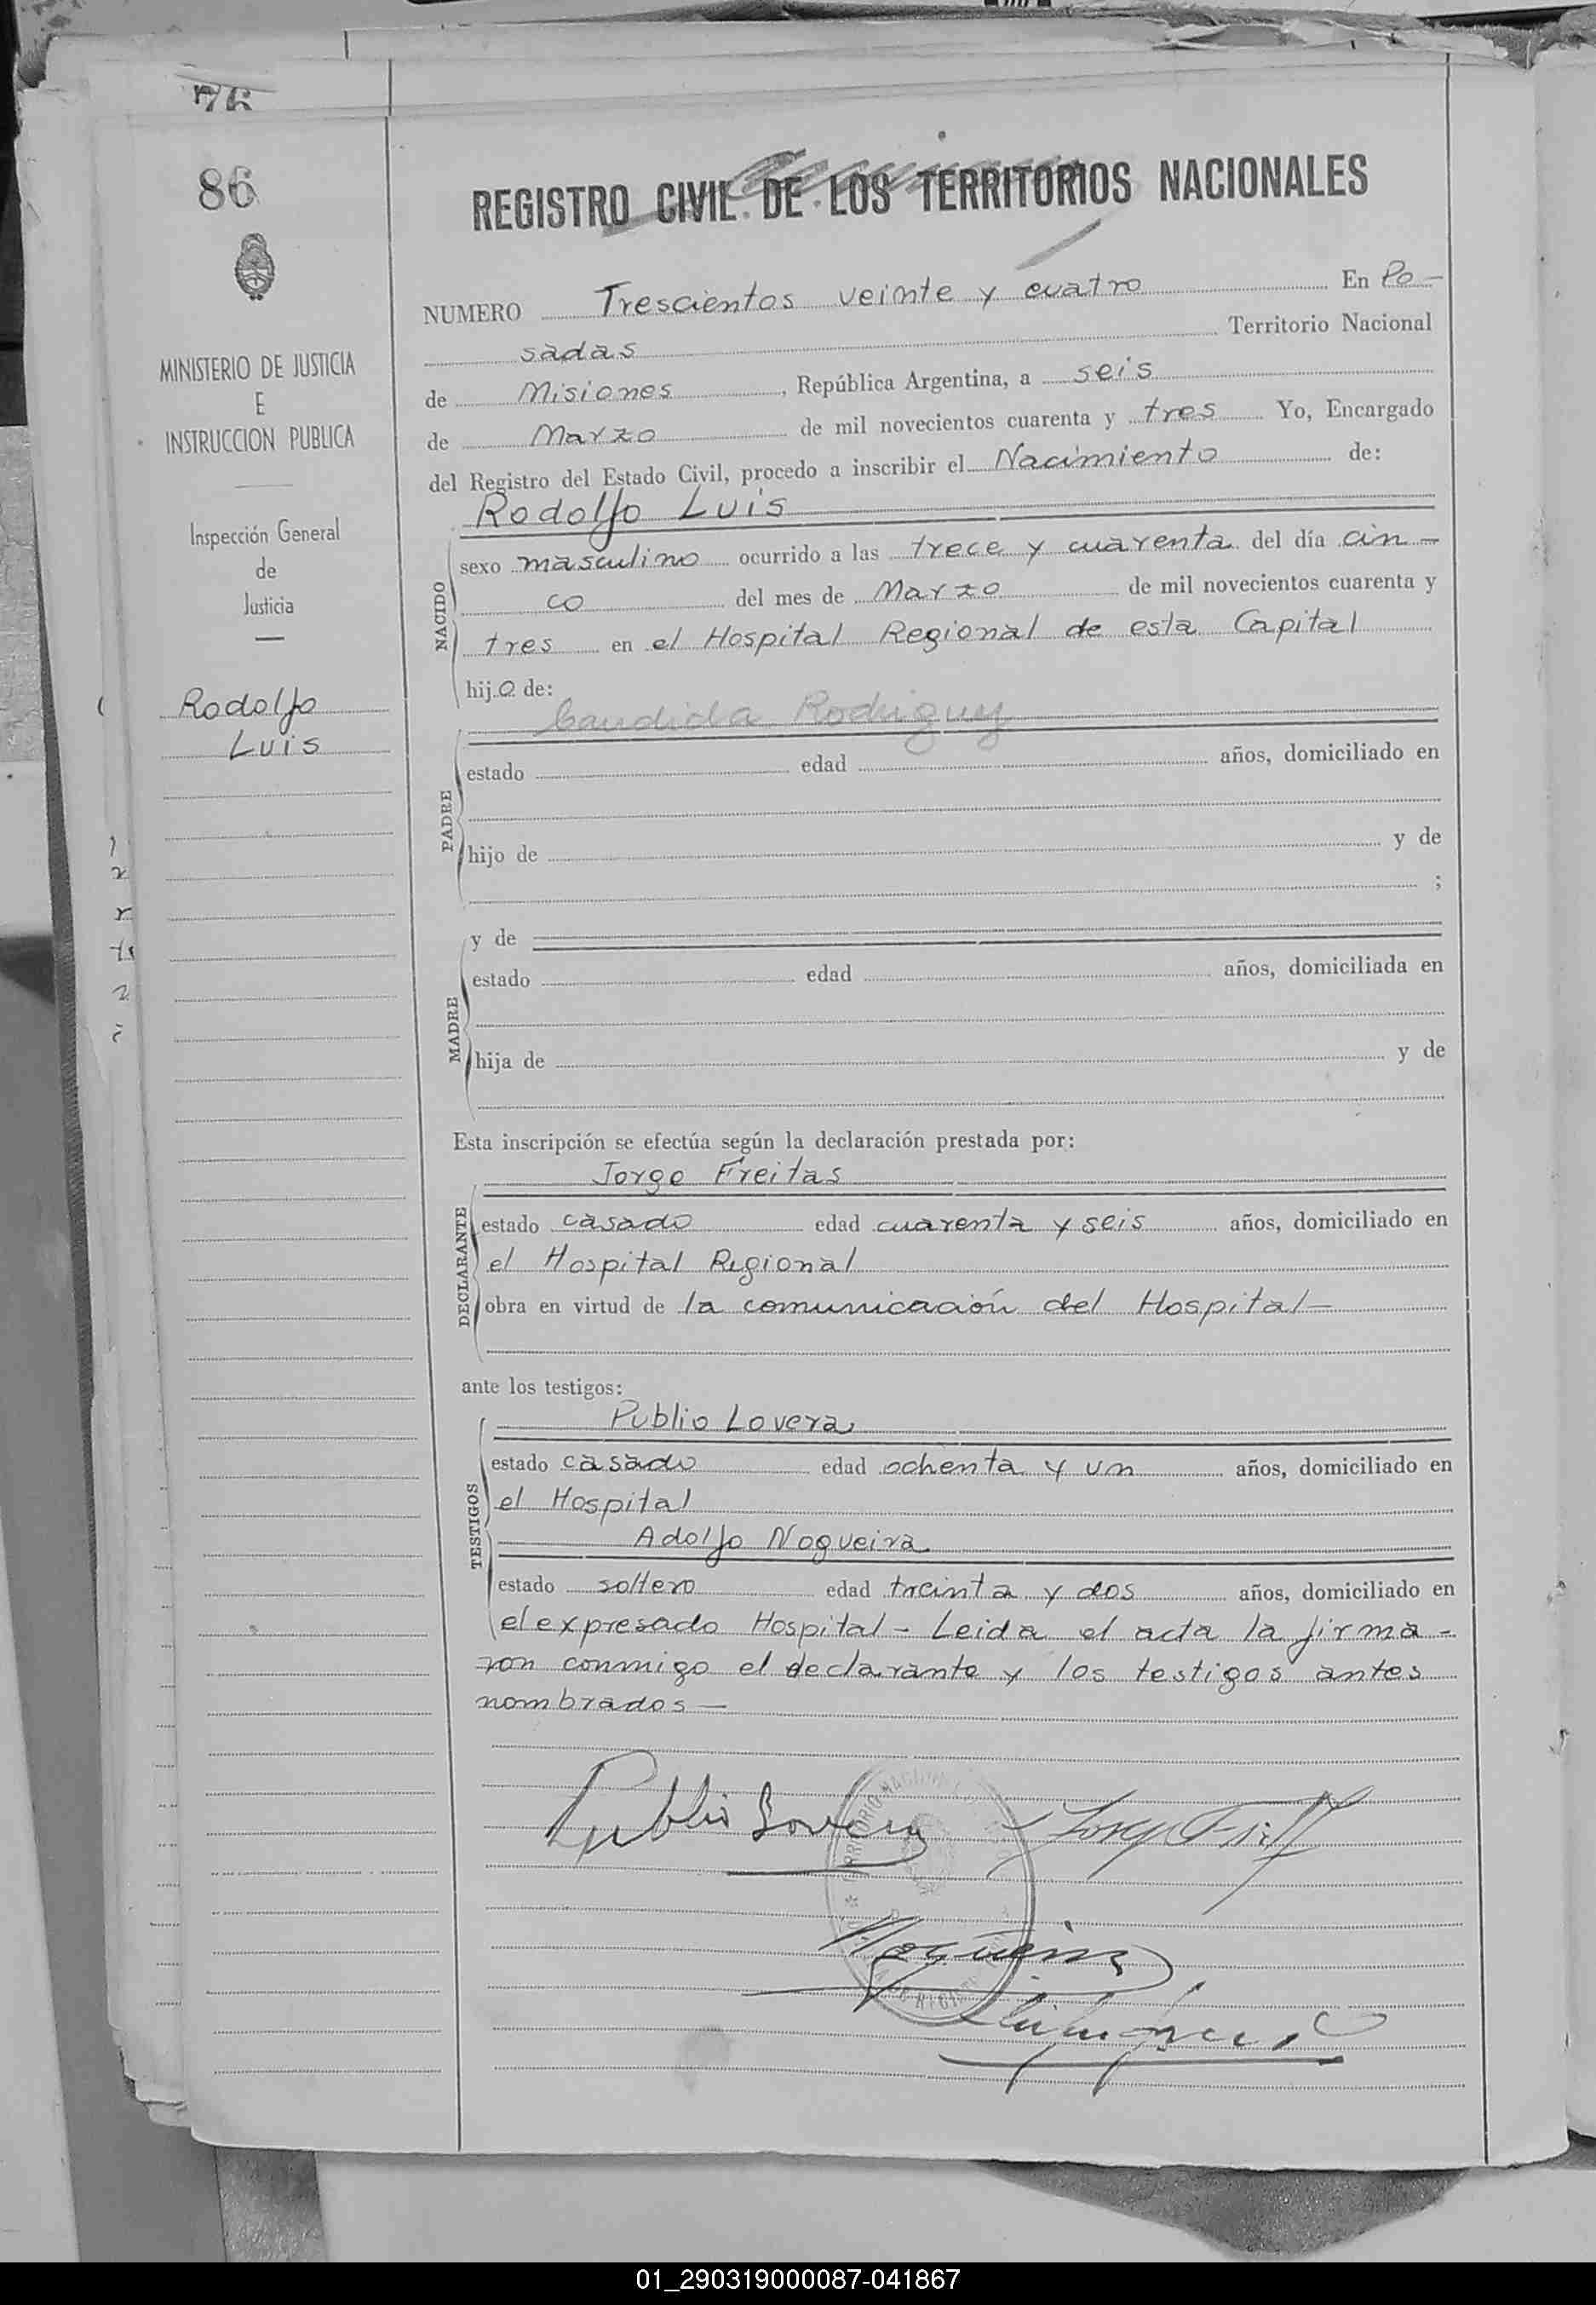 76
86
REGISTRO CIVIL DE LOS TERRITORIOS NACIONALES
NUMERO Trescientos veinte y cuatro En Po-
sadas Territorio Nacional
de Misiones, República Argentina, a seis
de Marzo de mil novecientos cuarenta y tres Yo, Encargado
del Registro del Estado Civil, procedo a inscribir el Nacimiento de:
Rodolfo Luis
NACIDO
sexo masculino ocurrido a las trece y cuarenta del día cin-
co del mes de Marzo de mil novecientos cuarenta y
tres en el Hospital Regional de esta Capital
hijo de:
Candida Rodriguez
PADRE
estado edad años, domiciliado en
hijo de y de
;
y de
MADRE
estado edad años, domiciliada en
hija de y de
Esta inscripción se efectúa según la declaración prestada por:
Jorge Freitas
DECLARANTE
estado casado edad cuarenta y seis años, domiciliado en
el Hospital Regional
obra en virtud de la comunicación del Hospital-
ante los testigos:
Publio Lovera
TESTIGOS
estado casado edad ochenta y un años, domiciliado en
el Hospital
Adolfo Nogueira
estado soltero edad treinta y dos años, domiciliado en
el expresado Hospital - Leida el acta la firma-
ron conmigo el declarante y los testigos antes
nombrados-
Publio Lovera
Nogueira
MINISTERIO DE JUSTICIA
E
INSTRUCCION PUBLICA
Inspección General
de
Justicia
Rodolfo
Luis
01_290319000087-041867